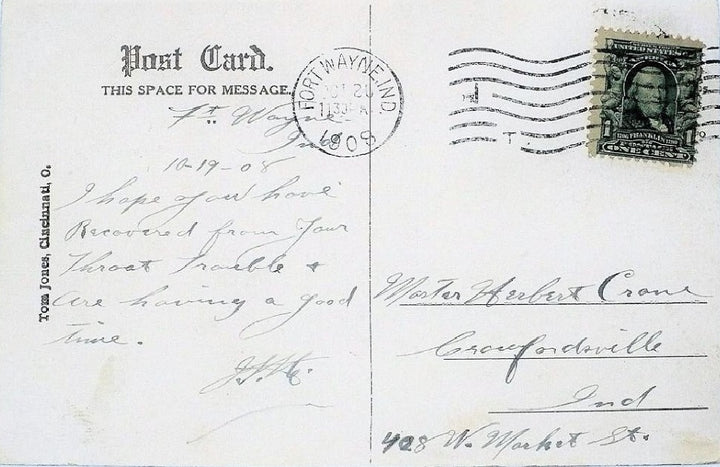 Post Card.
THIS SPACE FOR MESSAGE.
Ft. Wayne
Ind
10-19-08
I hope you have
Recovered from Your
Throat Trouble &
Are having a good
time.
Tom Jones, Cincinnati, O.
FORT WAYNE, IND.
1130P
1908
UNITED STATES
FRANKLIN
ONE CENT
Master Herbert Crane
Crawfordsville
Ind
408 W. Market St.